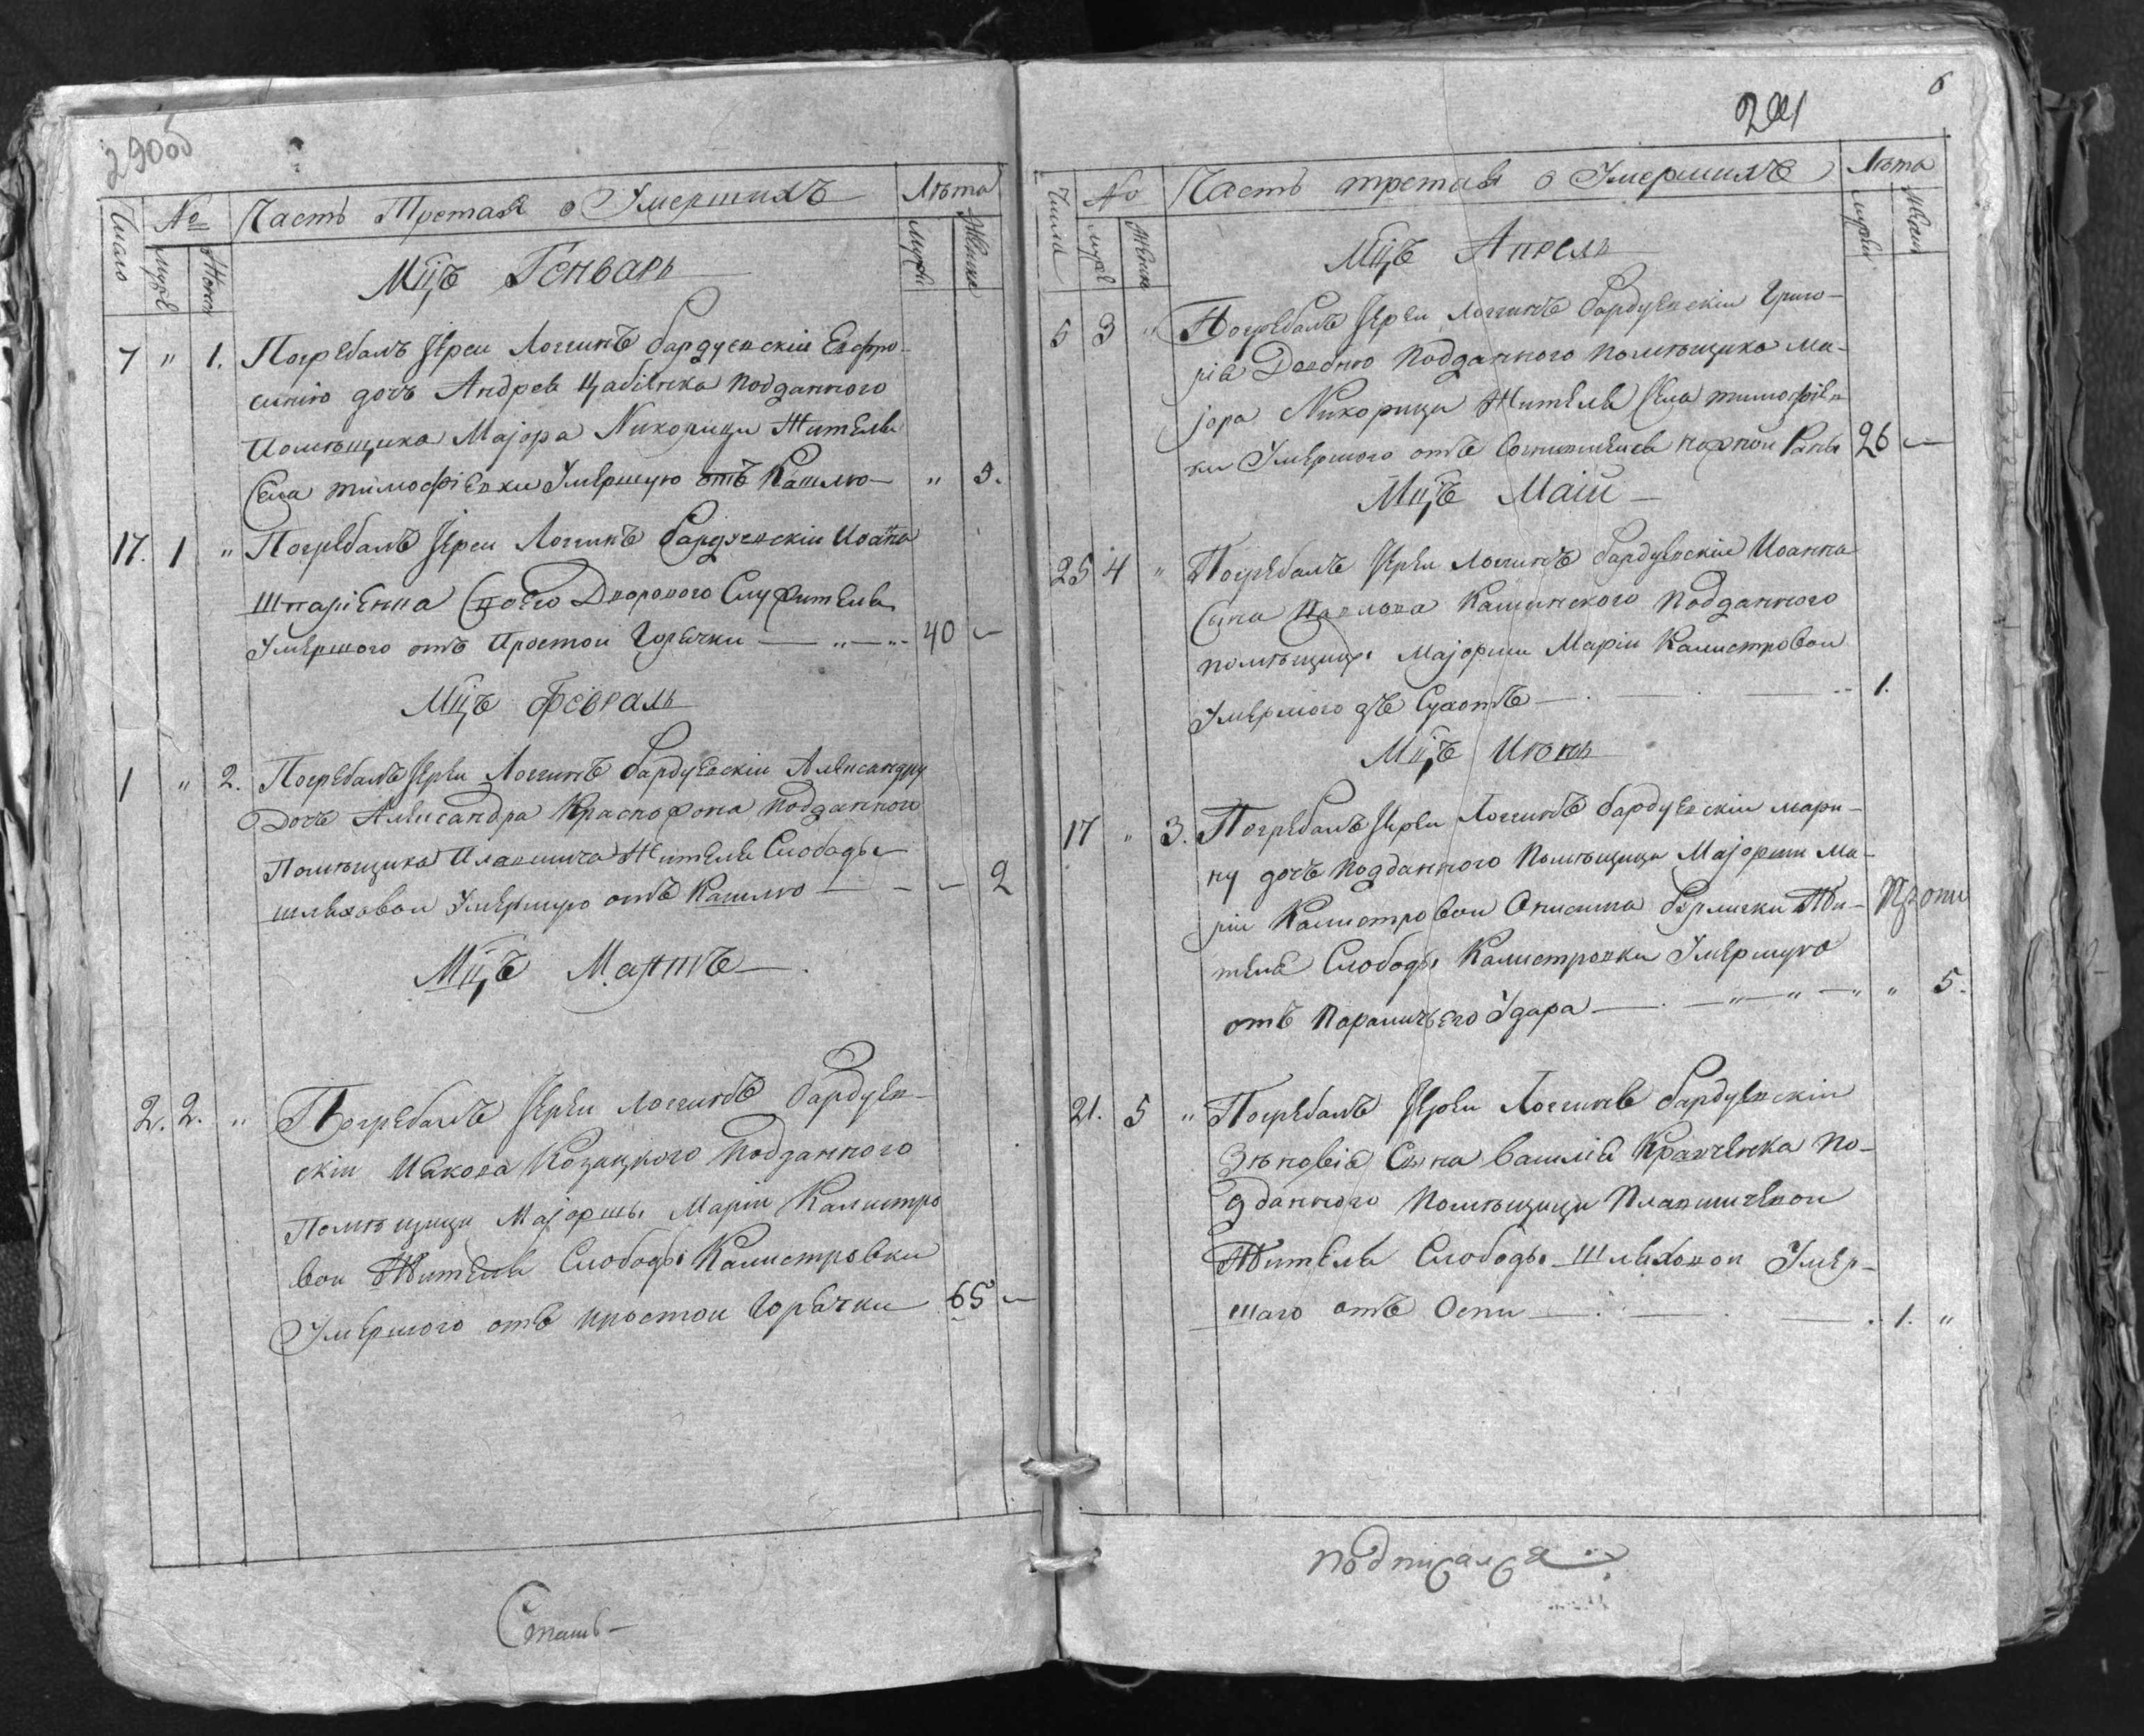 290об
Число
№
муж
жен
Часть Третая о Умершихъ
Лѣта
Мужи
Жены
Мцъ Генварь
7 " 1. Погребалъ Іереи Логгинъ Бардуевскіи Евфро-
синію дочь Андрея подданного
Помѣщика Маіора Никорици Жителя
Села тимофіевки Умершую отъ Кашлю — " 5.
17. 1 " Погребалъ Іереи Логгинъ Бардуевскіи Иоана
Шпаріевна своего Дворового Служителя
Умершого отъ Простои Горячки — " — " 40 —
Мцъ Февраль
1 " 2. Погребалъ Іереи Логгинъ Бардуевскіи Александру
Дочь Александра подданного
Помѣщика Жителя Слободы
Шляховои Умершую отъ Кашлю — — — 2
Мцъ Мартъ — .
2. 2. " Погребалъ Іереи Логгинъ Бардуев-
скіи Иякова Козацкого подданного
Помѣщици Маіоршы Маріи Калистро
вои Жителя Слободы Калистровки
Умершого отъ простои Горячки 65 —
6
291
Числа
№
мужи
жены
Часть третая о Умершихъ
Лѣта
мужи
жены
Мцъ Апрель
5 3 " Погребалъ Іереи Логгинъ Бардуевскіи Григо-
рія подданного помѣщика ма-
іора Никорици Жителя Села тимофіев
ки Умершого отъ 26 —
Мцъ Маій —
25 4 " Погребалъ Іереи Логгинъ Бардуевскіи Иоанна
Сына Павлова подданного
помѣщицы Маіорши Маріи Калистровои
Умершого зъ Сухотъ — . — . — 1.
Мцъ Июнь
17 " 3. Погребалъ Іереи Логгинъ Бардуевскіи мари-
ну дочь подданного Помѣщици Маіорши Ма-
ріи Калистровои Онисима Жи-
теля Слободы Калистровки Умершую
отъ Удара — . — " — " — " " 5.
21. 5 " Погребалъ Іереи Логгинъ Бардуевскіи
Зѣновія Сына василія Кравченка По-
дданного Помѣщици
Жителя Слободы Шляховои Умер-
шаго отъ Оспи — . — . — . 1. "
подписался